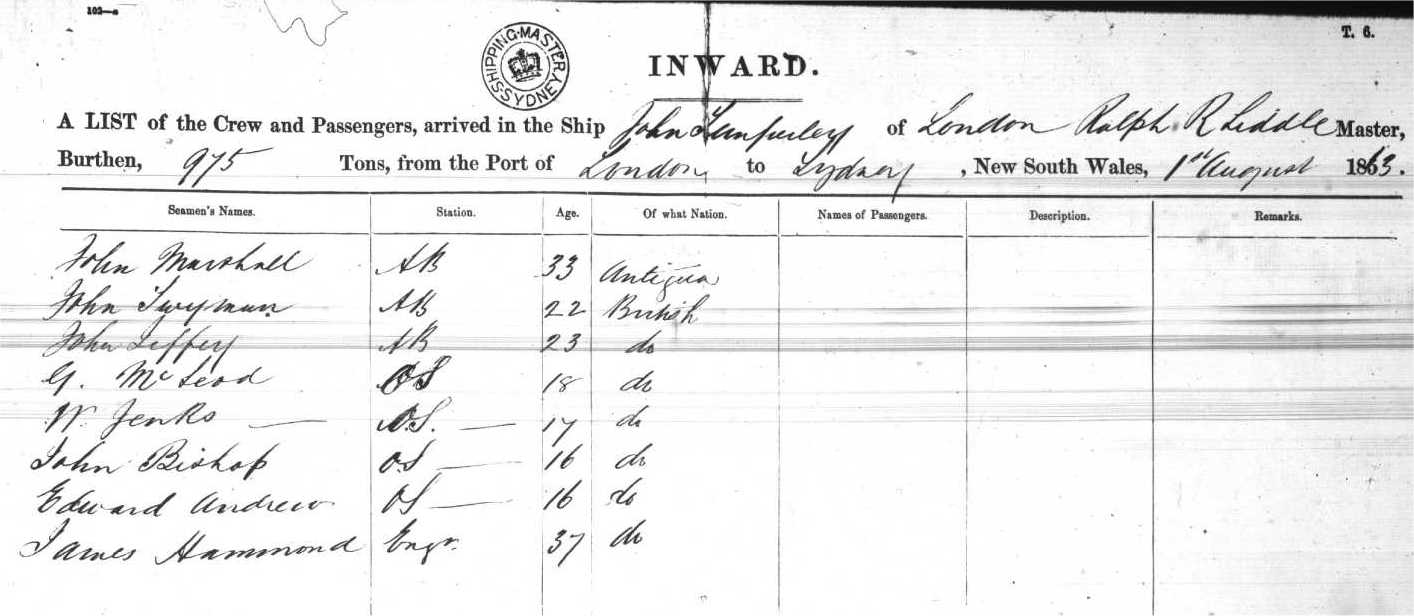 102—a
T. 6.
SHIPPING MASTER SYDNEY
INWARD.
A LIST of the Crew and Passengers, arrived in the Ship John Temperley of London Ralph R Liddle Master,
Burthen, 975 Tons, from the Port of London to Sydney, New South Wales, 1st August 1863.
Seamen's Names. Station. Age. Of what Nation. Names of Passengers. Description. Remarks.
John Marshall AB 33 Antigua
John Twyman AB 22 British
John Jeffery AB 23 do
G. McLeod OS 18 do
W. Jenks — O.S. — 17 do
John Bishop OS — 16 do
Edward Andrew OS — 16 do
James Hammond Engr. 37 do